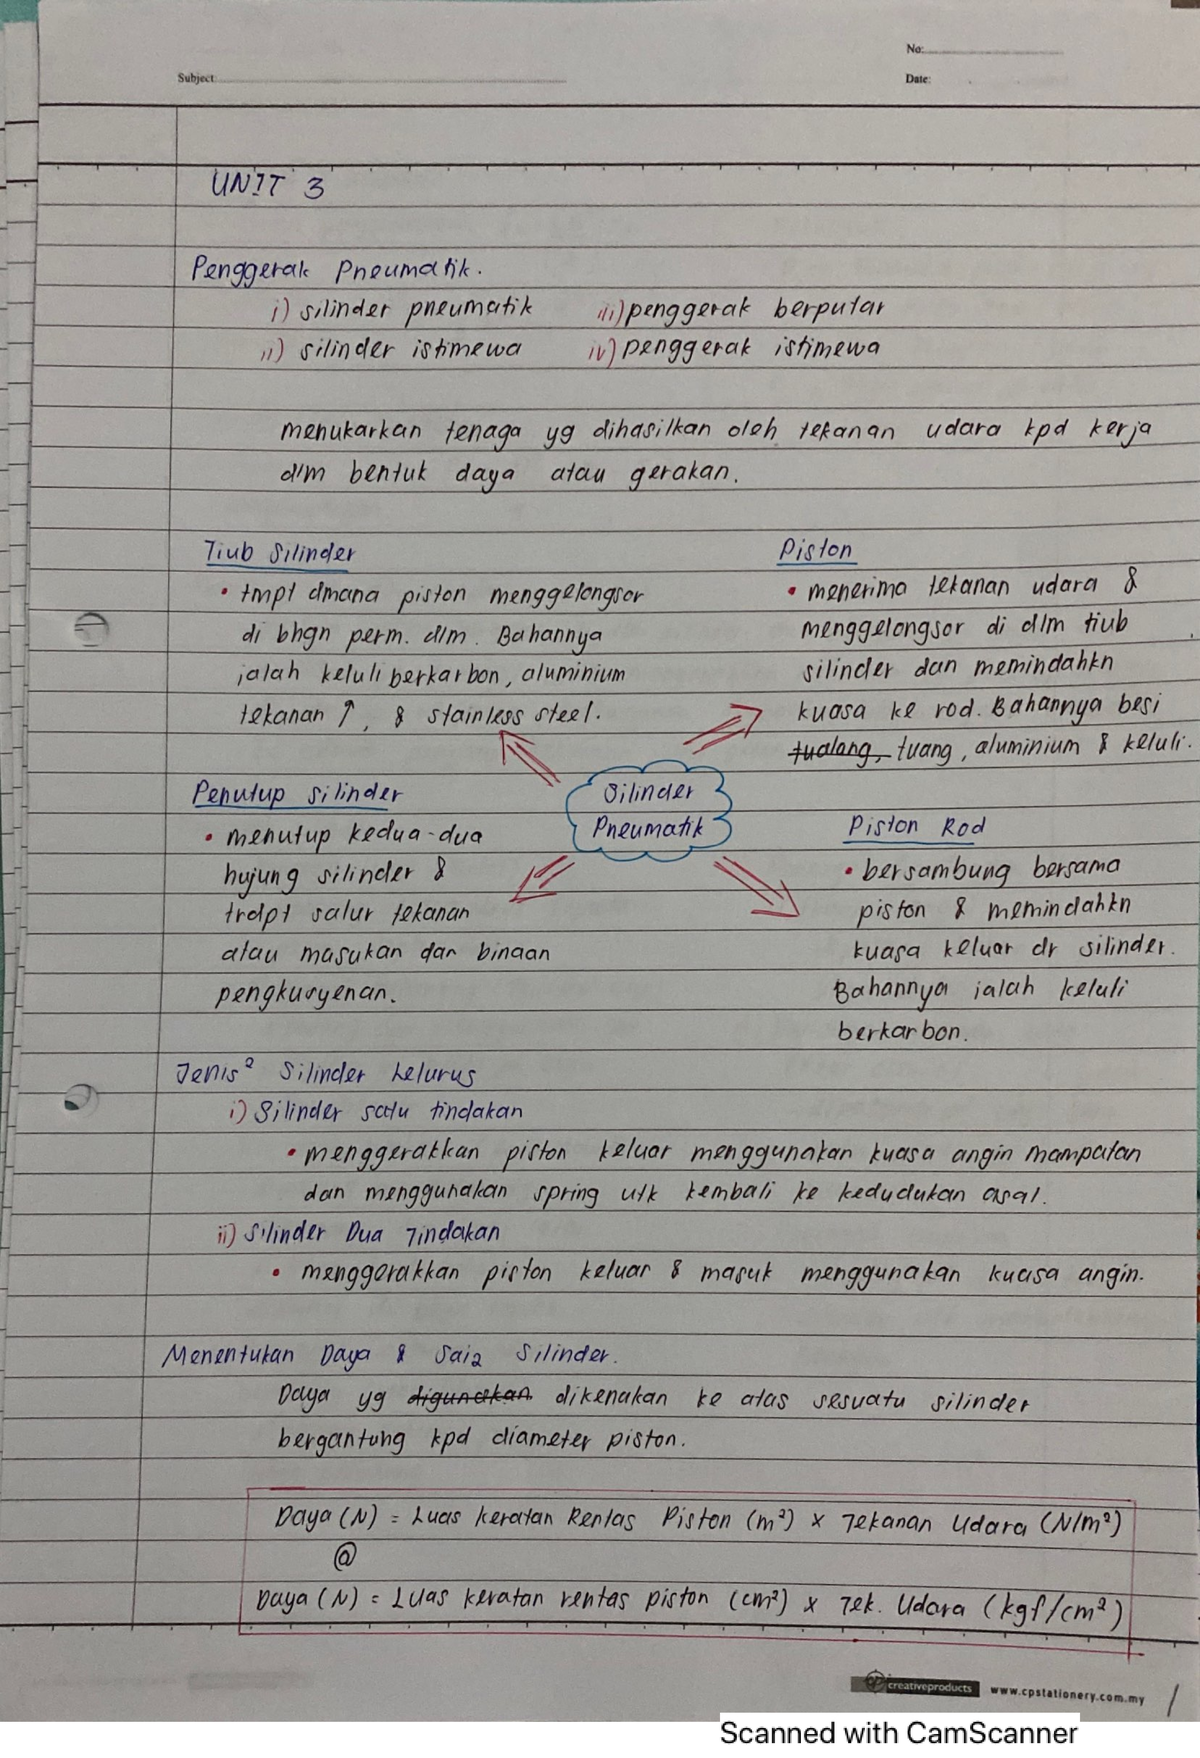 No:
Subject:
Date:
UNIT 3
Penggerak Pneumatik.
i) silinder pneumatik iii) penggerak berputar
ii) silinder istimewa iv) penggerak istimewa
menukarkan tenaga yg dihasilkan oleh tekanan udara kpd kerja
dlm bentuk daya atau gerakan.
Tiub Silinder
• tmpt dmana piston menggelongsor
di bhgn perm. dlm. Bahannya
ialah keluli berkarbon, aluminium
tekanan ↑, & stainless steel.
Piston
• menerima tekanan udara &
menggelongsor di dlm tiub
silinder dan memindahkn
kuasa ke rod. Bahannya besi
tualang, tuang, aluminium & keluli.
Silinder
Pneumatik
Penutup silinder
• menutup kedua-dua
hujung silinder &
trdpt salur tekanan
atau masukan dan binaan
pengkusyenan.
Piston Rod
• bersambung bersama
piston & memindahkn
kuasa keluar dr silinder.
Bahannya ialah keluli
berkarbon.
Jenis² Silinder Lelurus
i) Silinder satu tindakan
• menggerakkan piston keluar menggunakan kuasa angin mampatan
dan menggunakan spring utk kembali ke kedudukan asal.
ii) Silinder Dua Tindakan
• menggerakkan piston keluar & masuk menggunakan kuasa angin.
Menentukan Daya & Saiz Silinder.
Daya yg digunakan dikenakan ke atas sesuatu silinder
bergantung kpd diameter piston.
Daya (N) = Luas keratan Rentas Piston (m²) x Tekanan Udara (N/m²)
@
Daya (N) = Luas keratan rentas piston (cm²) x Tek. Udara (kgf/cm²)
cp creativeproducts www.cpstationery.com.my
1
Scanned with CamScanner